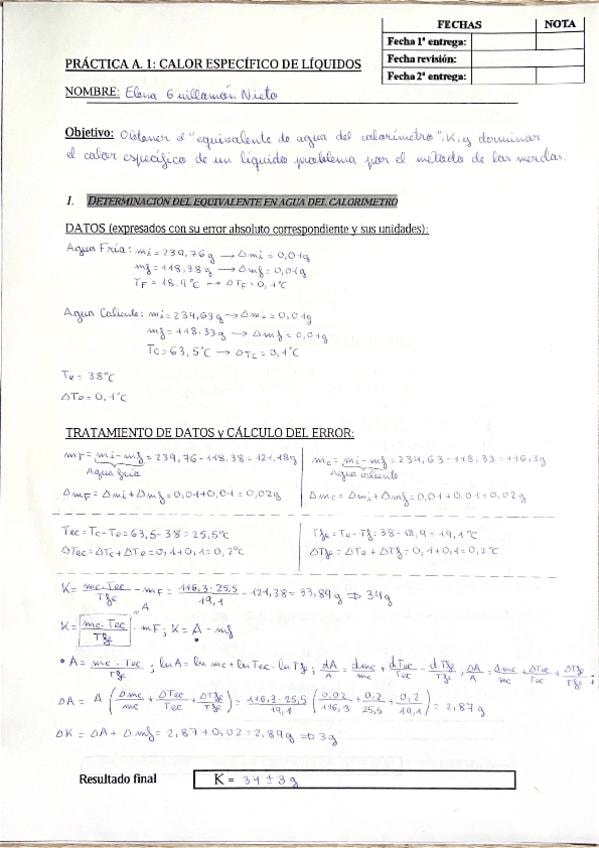 FECHAS NOTA
Fecha 1ª entrega:
Fecha revisión:
Fecha 2ª entrega:
PRÁCTICA A. 1: CALOR ESPECÍFICO DE LÍQUIDOS
NOMBRE: Elena Guillamón Nieto
Objetivo: Obtener el "equivalente de agua del calorímetro", K, y derminar
el calor específico de un líquido problema por el método de las mezclas.
1. DETERMINACIÓN DEL EQUIVALENTE EN AGUA DEL CALORÍMETRO
DATOS (expresados con su error absoluto correspondiente y sus unidades):
Agua Fría: mi = 239,76 g → Δmi = 0,01g
mf = 118,38 g → Δmf = 0,01g
TF = 18.9°C → ΔTF = 0,1°C
Agua Caliente: mi = 234,63 g → Δmi = 0,01g
mf = 118,33 g → Δmf = 0,01g
Tc = 63,5°C → ΔTc = 0,1°C
Te = 38°C
ΔTe = 0,1°C
TRATAMIENTO DE DATOS y CÁLCULO DEL ERROR:
mF = mi - mf = 239,76 - 118,38 = 121,18g
Agua fría
mc = mi - mf = 234,63 - 118,33 = 116,3g
Agua caliente
ΔmF = Δmi + Δmf = 0,01 + 0,01 = 0,02g
Δmc = Δmi + Δmf = 0,01 + 0,01 = 0,02g
Tec = Tc - Te = 63,5 - 38 = 25,5°C
Tfe = Te - Tf = 38 - 18,9 = 19,1°C
ΔTec = ΔTc + ΔTe = 0,1 + 0,1 = 0,2°C
ΔTfe = ΔTe + ΔTf = 0,1 + 0,1 = 0,2°C
K = mc · Tec / Tfe - mF = 116,3 · 25,5 / 19,1 - 121,38 = 33,89g ⇒ 34g
A
K = mc · Tec / Tfe - mF ; K = A - mf
• A = mc · Tec / Tfe ; ln A = ln mc + ln Tec - ln Tfe ; dA / A = dmc / mc + dTec / Tec - dTfe / Tfe ; ΔA / A = Δmc / mc + ΔTec / Tec + ΔTfe / Tfe ;
ΔA = A (Δmc / mc + ΔTec / Tec + ΔTfe / Tfe) = 116,3 · 25,5 / 19,1 (0,02 / 116,3 + 0,2 / 25,5 + 0,2 / 19,1) = 2,87g
ΔK = ΔA + Δmf = 2,87 + 0,02 = 2,89g ⇒ 3g
Resultado final K = 34 ± 3g